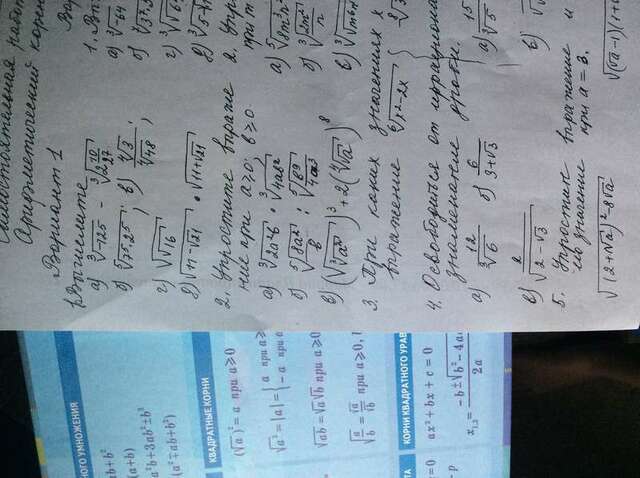 НОГО УМНОЖЕНИЯ
ab + b²
(a+b)
a²b+3ab²±b³
(a²∓ab+b²)
КВАДРАТНЫЕ КОРНИ
(√a)² = a при a≥0
√a² = |a| = { a при a≥
− a при a
√ab = √a√b при a≥0
√(a/b) = √a/√b при a≥0,
КОРНИ КВАДРАТНОГО УРАВ
ax² + bx + c = 0
x₁,₂ = (−b±√(b²−4a)/2a
Самостоятельная работ
Арифметический корен
Вариант 1
1. Вычислите
а) ∛−125 − ∛(2 10/27)
б) ⁵√(7⁵·2⁵); в) ⁴√3/⁴√48;
г) √√16
д) √(11−√21) · √(11+√21)
2. Упростите выраже
ние при a≥0; b≥0.
а) ∛(2a²b) · ∛(4ab²)
б) ⁵√(8a²/b) : ⁵√(b⁹/4a³)
в) (√∛a²)³ + 2(⁴√a)⁸
3. При каких значениях x
выражение ⁶√(x²−2x)
4. Освободиться от иррациона
знаменателе дроби.
а) 12/∛6 б) 6/(3+√3)
2/√(2−√3)
5. Упростит выражение и
его значение при a = 3.
√((2+√a)²−8√a)
Вар
1. Вы
а) ∛−64
б)
г)
д)
2. Упр
при
а) ⁵√(8m³n²
б) ∛(2m²/n
в)
а) 15/∛5
в)
√((√a−1)(1+